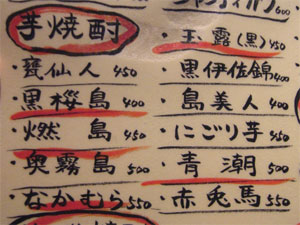 芋焼酎
・甕仙人 450
・黒桜島 400
・燃島 450
・奥霧島 500
・なかむら 550
・玉露(黒) 450
・黒伊佐錦 400
・島美人 400
・にごり芋 450
・青潮 500
・赤兎馬 550